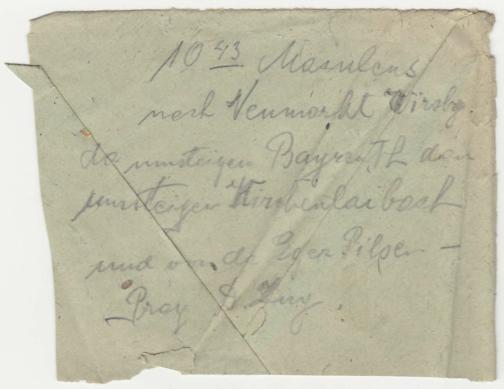 10 43
nach Neumarkt Wirsbg.
da umsteigen Bayreuth dan
umsteigen Kirchenlaibach
und von da Eger Pilsen –
Prag D. Zug.